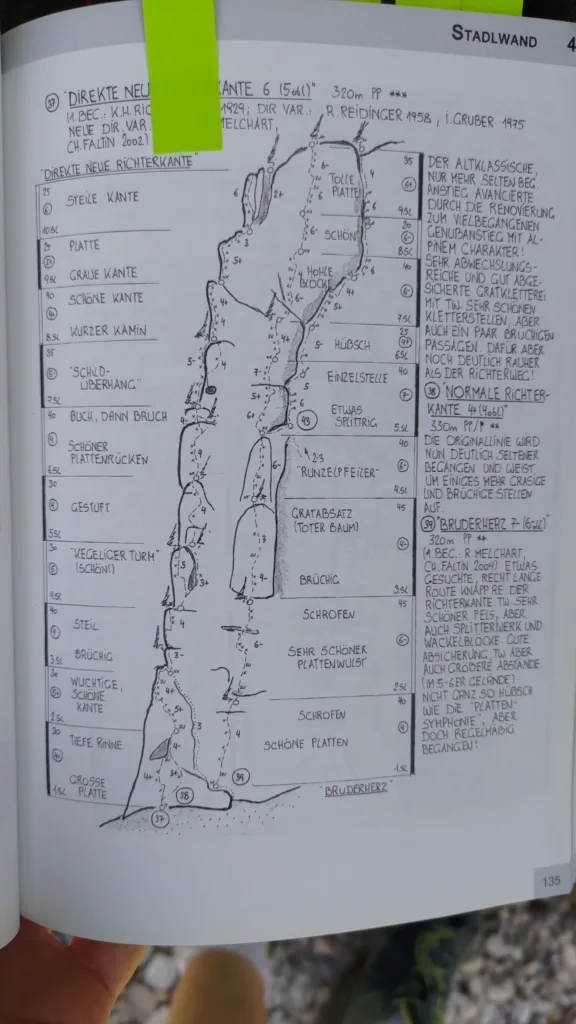 STADLWAND 4
37 "DIREKTE NEUE KANTE 6 (5obl)" 320m PP ***
(1.BEC.: K.H. RIC 1929; DIR VAR.: R. REIDINGER 1958, I. GRUBER 1975
NEUE DIR. VAR. MELCHART,
CH. FALTIN 2002)
"DIREKTE NEUE RICHTERKANTE"
25
6- STEILE KANTE
10.SL
25 PLATTE
9.SL GRAUE KANTE
40 SCHÖNE KANTE
8.SL KURZER KAMIN
35
6- "SCHILD-
ÜBERHANG"
7.SL
40 BUCH, DANN BRUCH
4
SCHÖNER
PLATTENRÜCKEN
6.SL
30
4 GESTUFT
5.SL
30 "KEGELIGER TURM"
5 (SCHÖN!)
4.SL
40 STEIL
4
3.SL BRÜCHIG
30 WUCHTIGE,
SCHÖNE
KANTE
2.SL
30 TIEFE RINNE
GROSSE
1.SL PLATTE
TOLLE
PLATTE
35
6+
9.SL
SCHÖN
20
6-
8.SL
HOHLE
BLÖCKE
40
6-
7.SL
HÜBSCH
25
4+
6.SL
EINZELSTELLE
40
7-
ETWAS
SPLITTRIG
5.SL
43
2-3
"RUNZELPFEILER"
40
6-
4.SL
GRATABSATZ
(TOTER BAUM)
45
4-
BRÜCHIG
3.SL
SCHROFEN
45
SEHR SCHÖNER
PLATTENWULST
6-
2.SL
SCHROFEN
40
SCHÖNE PLATTEN
4
1.SL
37
38
39
"BRUDERHERZ"
DER ALTKLASSISCHE,
NUR MEHR SELTEN BEG.
ANSTIEG, AVANCIERTE
DURCH DIE RENOVIERUNG
ZUM VIELBEGANGENEN
GENUßANSTIEG MIT AL-
PINEM CHARAKTER!
SEHR ABWECHSLUNGS-
REICHE UND GUT ABGE-
SICHERTE GRATKLETTEREI
MIT TW. SEHR SCHÖNEN
KLETTERSTELLEN, ABER
AUCH EIN PAAR BRÜCHIGEN
PASSAGEN. DAFÜR ABER
NOCH DEUTLICH RAUHER
ALS DER RICHTERWEG!
38 "NORMALE RICHTER-
KANTE 4+ (4obl)"
330m PP/P **
DIE ORIGINALLINIE WIRD
NUN DEUTLICH SELTENER
BEGANGEN UND WEIST
UM EINIGES MEHR GRASIGE
UND BRÜCHIGE STELLEN
AUF.
39 "BRUDERHERZ 7- (6-obl)"
320m PP **
(1.BEC.: R. MELCHART,
CH. FALTIN 2004) ETWAS
GESUCHTE, RECHT LANGE
ROUTE KNAPP RE. DER
RICHTERKANTE. TW. SEHR
SCHÖNER FELS, ABER
AUCH SPLITTERWERK UND
WACKELBLÖCKE. GUTE
ABSICHERUNG, TW. ABER
AUCH GRÖßERE ABSTÄNDE
(IM 5-6ER GELÄNDE).
NICHT GANZ SO HÜBSCH
WIE DIE "PLATTEN-
SYMPHONIE", ABER
DOCH REGELMÄßIG
BEGANGEN!
135